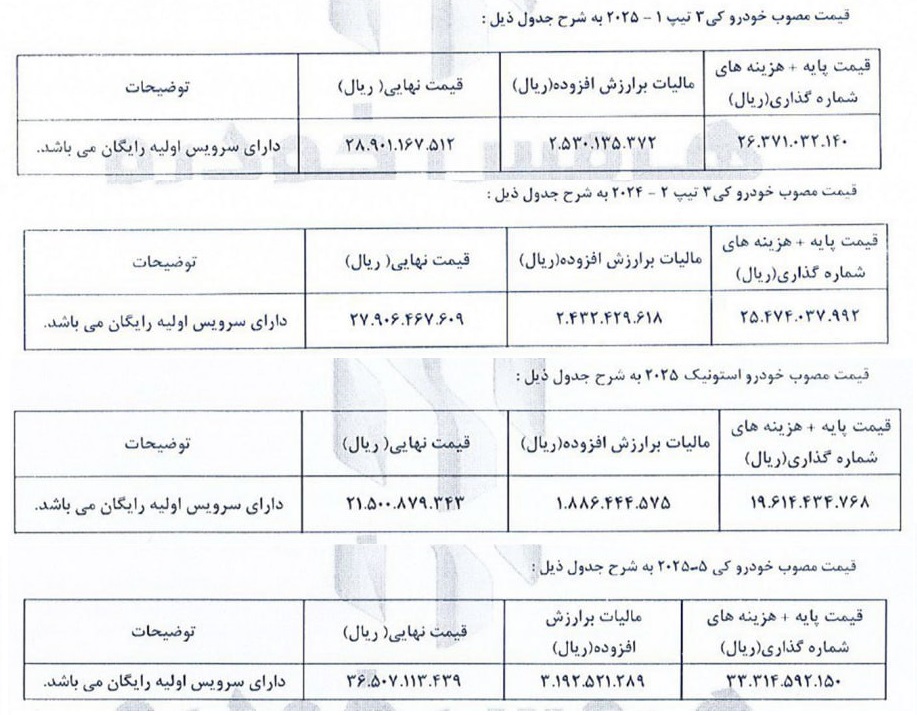 قیمت مصوب خودرو کی۳ تیپ ۱ - ۲۰۲۵ به شرح جدول ذیل :
قیمت پایه + هزینه های شماره گذاری(ریال) مالیات برارزش افزوده(ریال) قیمت نهایی( ریال) توضیحات
۲۶.۳۷۱.۰۳۲.۱۴۰ ۲.۵۳۰.۱۳۵.۳۷۲ ۲۸.۹۰۱.۱۶۷.۵۱۲ دارای سرویس اولیه رایگان می باشد.
قیمت مصوب خودرو کی۳ تیپ ۲ - ۲۰۲۴ به شرح جدول ذیل :
قیمت پایه + هزینه های شماره گذاری(ریال) مالیات برارزش افزوده(ریال) قیمت نهایی( ریال) توضیحات
۲۵.۴۷۴.۰۳۷.۹۹۲ ۲.۴۳۲.۴۲۹.۶۱۸ ۲۷.۹۰۶.۴۶۷.۶۰۹ دارای سرویس اولیه رایگان می باشد.
قیمت مصوب خودرو استونیک ۲۰۲۵ به شرح جدول ذیل :
قیمت پایه + هزینه های شماره گذاری(ریال) مالیات برارزش افزوده(ریال) قیمت نهایی( ریال) توضیحات
۱۹.۶۱۴.۴۳۴.۷۶۸ ۱.۸۸۶.۴۴۴.۵۷۵ ۲۱.۵۰۰.۸۷۹.۳۴۳ دارای سرویس اولیه رایگان می باشد.
قیمت مصوب خودرو کی ۵-۲۰۲۵ به شرح جدول ذیل :
قیمت پایه + هزینه های شماره گذاری(ریال) مالیات برارزش افزوده(ریال) قیمت نهایی( ریال) توضیحات
۳۳.۳۱۴.۵۹۲.۱۵۰ ۳.۱۹۲.۵۲۱.۲۸۹ ۳۶.۵۰۷.۱۱۳.۴۳۹ دارای سرویس اولیه رایگان می باشد.